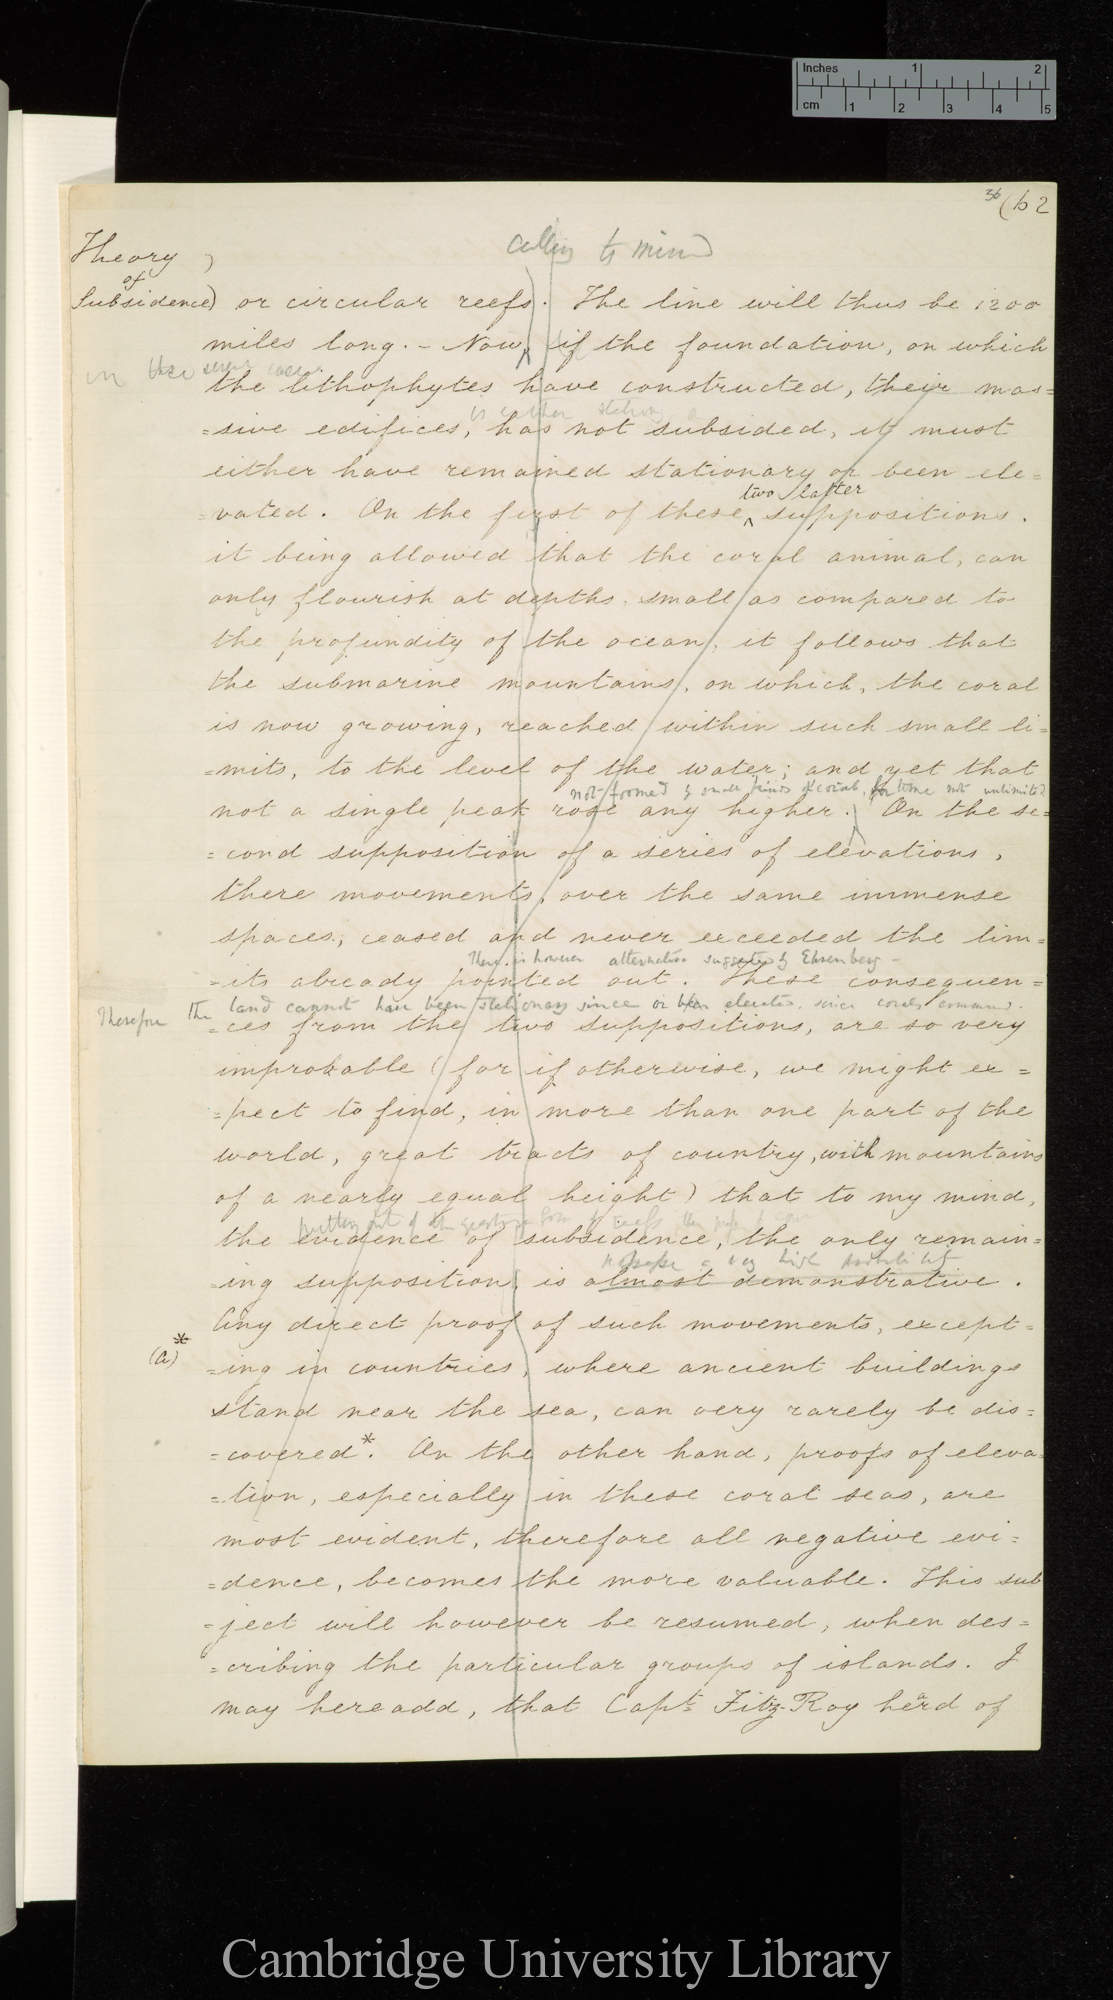 Inches 1 2
cm 1 2 3 4 5
36 (b 2
calling to mind
Theory
of
Subsidence) or circular reefs. The line will thus be 1200
miles long. - Now, if the foundation, on which
in these several cases
the lithophytes have constructed, their mas=
=sive edifices, has not subsided, it must
either have remained stationary or been ele=
two latter
=vated. On the first of these suppositions.
it being allowed that the coral animal, can
only flourish at depths, small as compared to
the profundity of the ocean, it follows that
the submarine mountains, on which, the coral
is now growing, reached within such small li=
=mits, to the level of the water; and yet that
not formed by small kinds of coral, for time not unlimited
not a single peak rose any higher. On the se=
=cond supposition of a series of elevations,
there movements, over the same immense
spaces, ceased and never exceeded the lim=
There is however alternative suggested by Ehrenberg -
=its already pointed out. These consequen=
Therefore the land cannot have been stationary since or been elevated. since corals commenced.
=ces from the two suppositions, are so very
improbable (for if otherwise, we might ex=
=pect to find, in more than one part of the
world, great tracts of country, with mountains
of a nearly equal height) that to my mind,
putting out of the question
the evidence of subsidence, the only remain=
a very high probability
=ing supposition, is almost demonstrative.
Any direct proof of such movements, except=
(a)*
=ing in countries, where ancient buildings
stand near the sea, can very rarely be dis=
=covered*. On the other hand, proofs of eleva=
=tion, especially in these coral seas, are
most evident, therefore all negative evi=
=dence, becomes the more valuable. This sub
=ject will however be resumed, when des=
=cribing the particular groups of islands. I
may here add, that Capt. Fitz-Roy heard of
Cambridge University Library